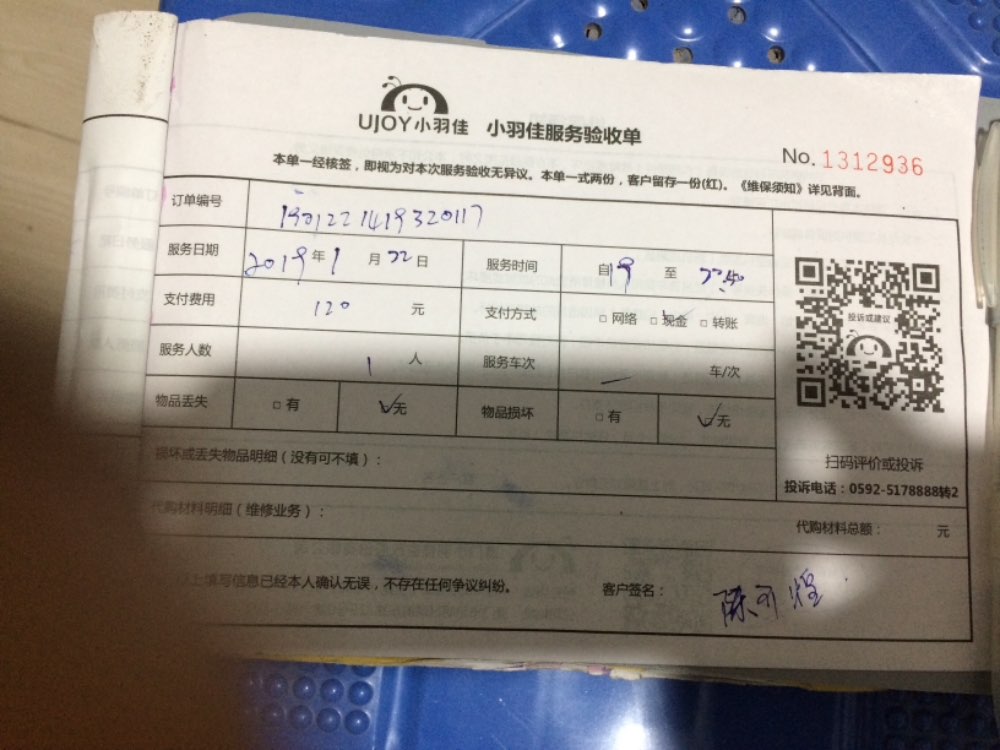 UJOY小羽佳 小羽佳服务验收单
No. 1312936
本单一经核签，即视为对本次服务验收无异议。本单一式两份，客户留存一份(红)。《维保须知》详见背面。
订单编号 1901221419320117
服务日期 2019年1月22日 服务时间 自19至22:40
支付费用 120元 支付方式 □网络 □现金 □转账
服务人数 1人 服务车次 — 车/次
物品丢失 □有 ☑无 物品损坏 □有 ☑无
投诉或建议
扫码评价或投诉
投诉电话：0592-5178888转2
损坏或丢失物品明细（没有可不填）：
代购材料明细（维修业务）： 代购材料总额： 元
上填写信息已经本人确认无误，不存在任何争议纠纷。 客户签名：